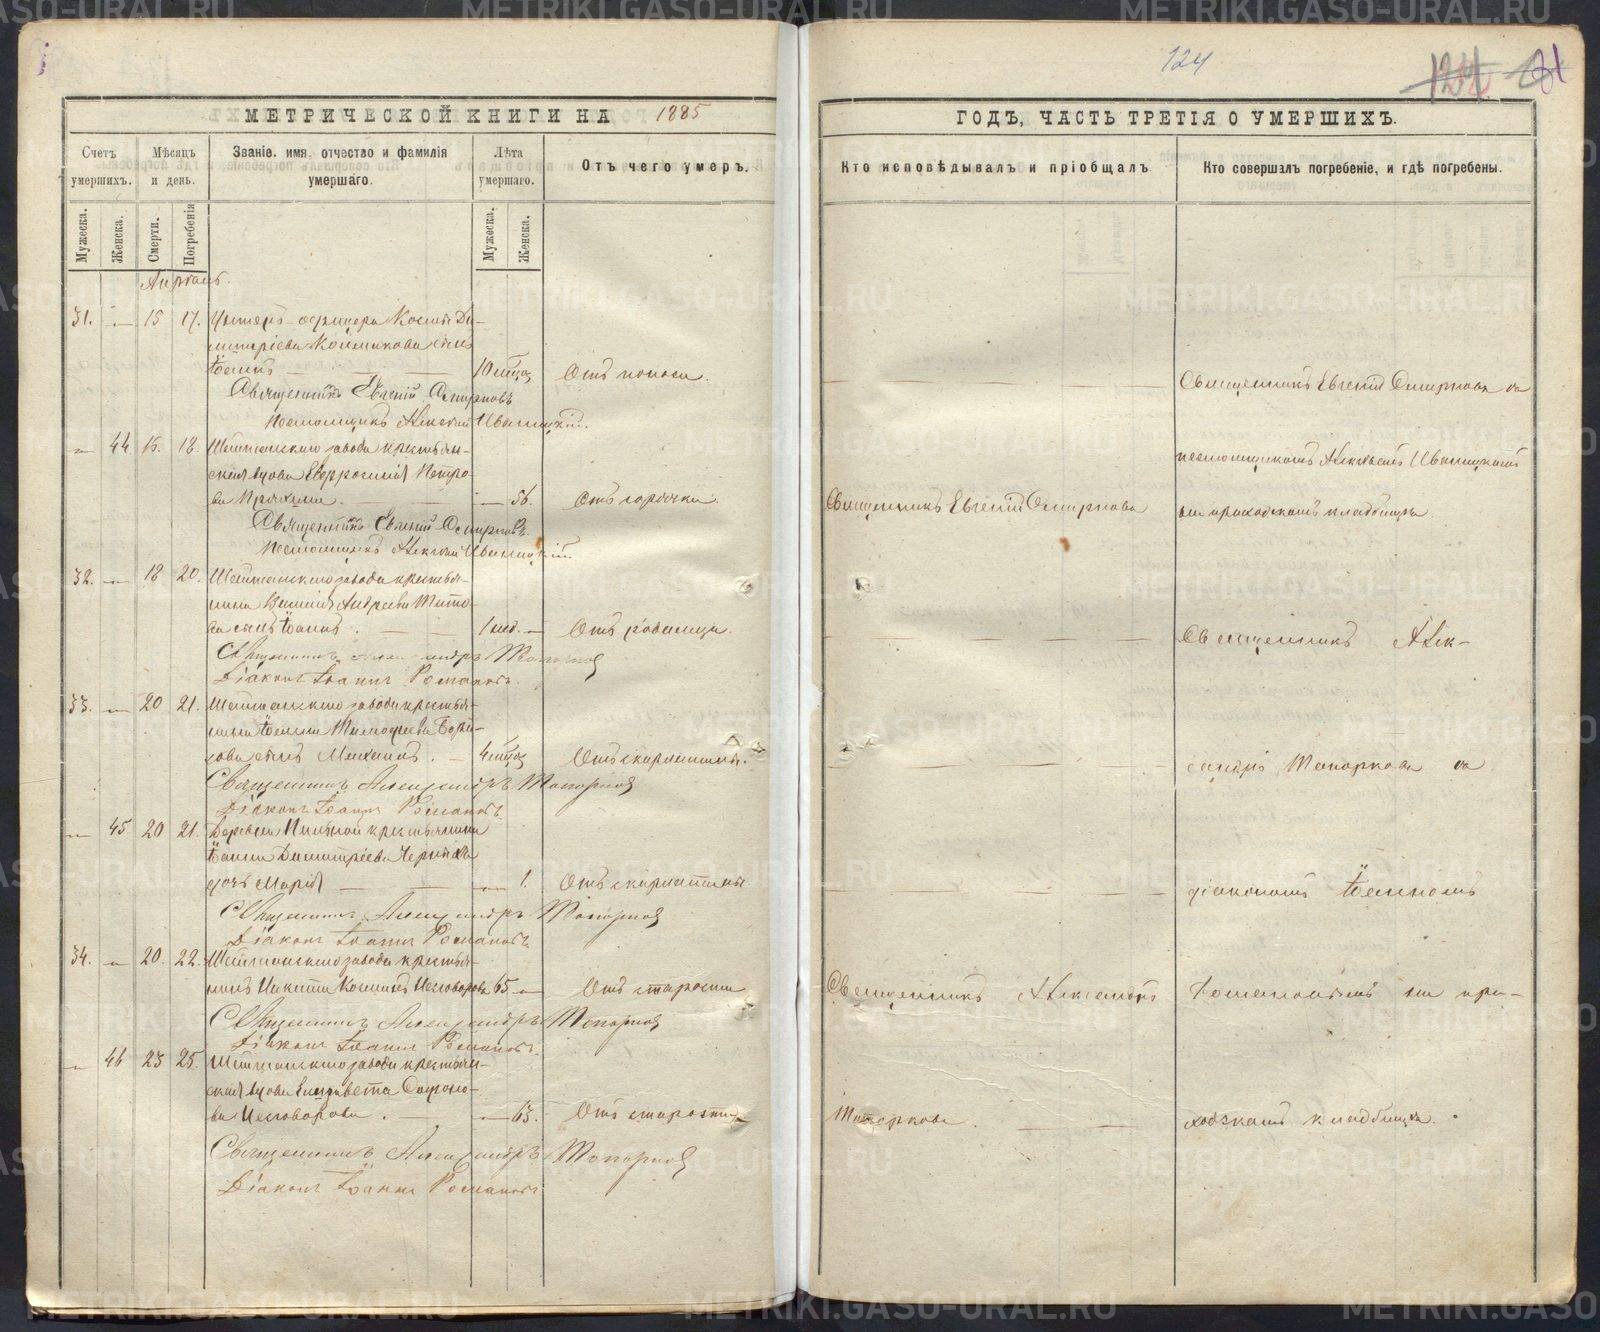 124
МЕТРИЧЕСКОЙ КНИГИ НА 1885
ГОДЪ, ЧАСТЬ ТРЕТІЯ О УМЕРШИХЪ.
Счетъ умершихъ.
Мѣсяцъ и день.
Званіе. имя, отчество и фамилія умершаго.
Лѣта умершаго.
Отъ чего умеръ.
Кто исповѣдывалъ и пріобщалъ
Кто совершалъ погребеніе, и гдѣ погребены.
Мужеска.
Женска.
Смерти.
Погребенія
Мужеска.
Женска.
Апрѣль.
31. — 15 17. Унтеръ-офицера Космы Ди-
митріева сынъ
Іоаннъ — 10 мѣсц. Отъ поноса.
Священникъ Евгеній Смирновъ
Псаломщикъ Алексій Иваницкій.
Священникъ Евгеній Смирновъ съ
— 44. 16. 18. Шайтанскаго завода крестьян-
ская вдова Евфросинія Петро-
ва — 56. Отъ горячки.
псаломщикомъ Алексѣемъ Иваницкимъ
Священникъ Евгеній Смирновъ
на приходскомъ кладбищѣ.
Священникъ Евгеній Смирновъ.
Псаломщикъ Алексій Иваницкій.
32. — 18 20. Шайтанскаго завода крестья-
нина Василія Андреева Тито-
ва сынъ Іоаннъ. 1 нед. — Отъ родимца.
Священникъ Алек-
Священникъ Александръ Топорковъ
Діаконъ Іоаннъ Романовъ.
33. — 20 21. Шайтанскаго завода крестья-
нина Іоанна Тимофеева Бори-
сова сынъ Михаилъ. — 4 мѣсц. Отъ скарлатины.
сандръ Топорковъ съ
Священникъ Александръ Топорковъ
Діаконъ Іоаннъ Романовъ.
— 45 20 21. Деревни крестьянина
Іоанна Димитріева
дочь Марія — 1. Отъ скарлатины.
діакономъ Іоанномъ
Священникъ Александръ Топорковъ
Діаконъ Іоаннъ Романовъ.
34. — 20. 22. Шайтанскаго завода крестья-
нинъ Никита Косминъ Несговоровъ 65 — Отъ старости
Священникъ Александръ
Романовымъ на при-
Священникъ Александръ Топорковъ
Діаконъ Іоаннъ Романовъ.
— 46 23 25. Шайтанскаго завода крестьян-
ская вдова Елизавета Софроно-
ва Несговорова. — 63. Отъ старости
Топорковъ.
ходскомъ кладбищѣ.
Священникъ Александръ Топорковъ
Діаконъ Іоаннъ Романовъ
METRIKI.GASO-URAL.RU